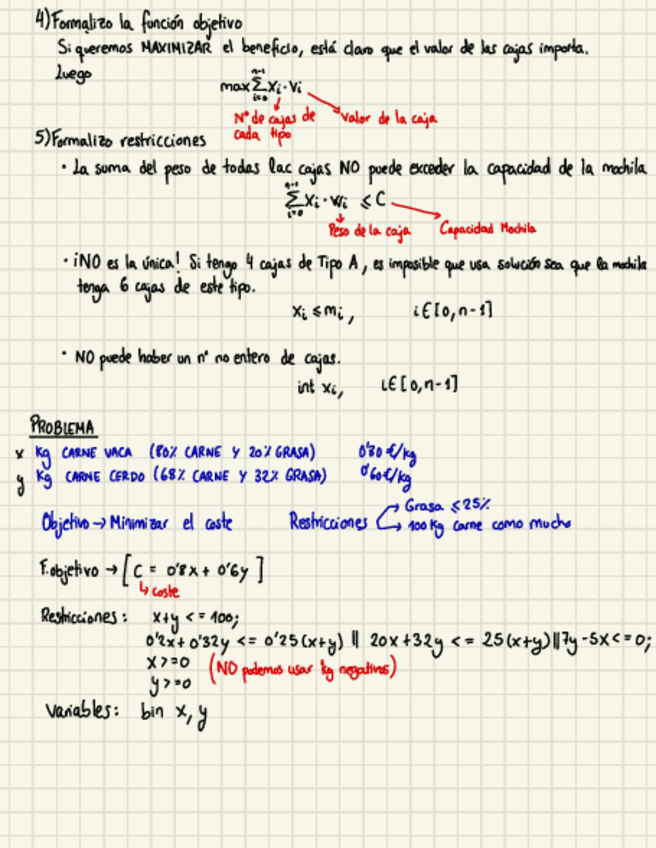 4) Formalizo la función objetivo
Si queremos MAXIMIZAR el beneficio, está claro que el valor de las cajas importa.
Luego
max Σ_{i=0}^{n-1} xi · Vi
Nº de cajas de cada tipo
Valor de la caja
5) Formalizo restricciones
· La suma del peso de todas lac cajas NO puede exceder la capacidad de la mochila
Σ_{i=0}^{n-1} xi · wi ≤ C
Peso de la caja
Capacidad Mochila
· ¡NO es la única! Si tengo 4 cajas de Tipo A, es imposible que usa solución sea que la mochila
tenga 6 cajas de este tipo.
xi ≤ mi, i ∈ [0, n-1]
· NO puede haber un nº no entero de cajas.
int xi, i ∈ [0, n-1]
PROBLEMA
x Kg CARNE VACA (80% CARNE Y 20% GRASA) 0'80 €/kg
y Kg CARNE CERDO (68% CARNE Y 32% GRASA) 0'60 €/kg
Objetivo → Minimizar el coste
Restricciones → Grasa ≤ 25%
→ 100 Kg carne como mucho
F. objetivo → [C = 0'8x + 0'6y]
↳ coste
Restricciones: x+y <= 100;
0'2x + 0'32y <= 0'25(x+y) || 20x + 32y <= 25(x+y) || 7y - 5x <= 0;
x >= 0
(NO podemos usar kg negativos)
y >= 0
Variables: bin x, y